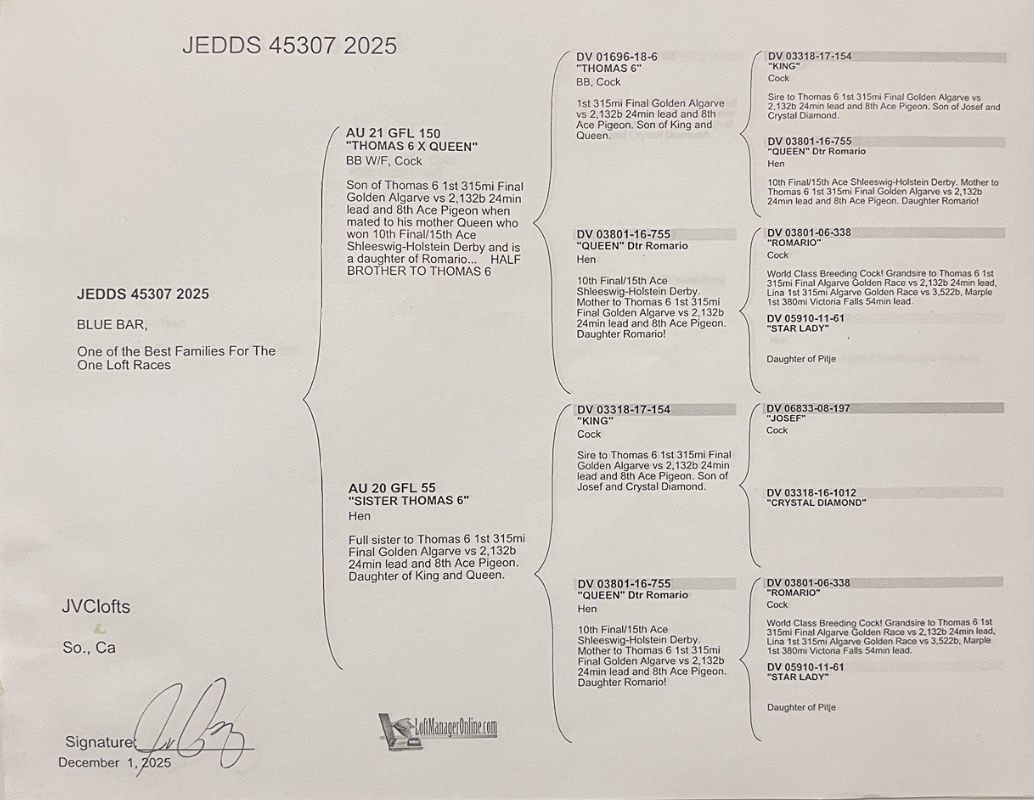 JEDDS 45307 2025
JEDDS 45307 2025
BLUE BAR,
One of the Best Families For The
One Loft Races
JVClofts
So., Ca
Signature:
December 1, 2025
AU 21 GFL 150
"THOMAS 6 X QUEEN"
BB W/F, Cock
Son of Thomas 6 1st 315mi Final
Golden Algarve vs 2,132b 24min
lead and 8th Ace Pigeon when
mated to his mother Queen who
won 10th Final/15th Ace
Shleeswig-Holstein Derby and is
a daughter of Romario... HALF
BROTHER TO THOMAS 6
AU 20 GFL 55
"SISTER THOMAS 6"
Hen
Full sister to Thomas 6 1st 315mi
Final Golden Algarve vs 2,132b
24min lead and 8th Ace Pigeon.
Daughter of King and Queen.
LoftManagerOnline.com
DV 01696-18-6
"THOMAS 6"
BB, Cock
1st 315mi Final Golden Algarve
vs 2,132b 24min lead and 8th
Ace Pigeon. Son of King and
Queen.
DV 03801-16-755
"QUEEN" Dtr Romario
Hen
10th Final/15th Ace
Shleeswig-Holstein Derby.
Mother to Thomas 6 1st 315mi
Final Golden Algarve vs 2,132b
24min lead and 8th Ace Pigeon.
Daughter Romario!
DV 03318-17-154
"KING"
Cock
Sire to Thomas 6 1st 315mi Final
Golden Algarve vs 2,132b 24min
lead and 8th Ace Pigeon. Son of
Josef and Crystal Diamond.
DV 03801-16-755
"QUEEN" Dtr Romario
Hen
10th Final/15th Ace
Shleeswig-Holstein Derby.
Mother to Thomas 6 1st 315mi
Final Golden Algarve vs 2,132b
24min lead and 8th Ace Pigeon.
Daughter Romario!
DV 03318-17-154
"KING"
Cock
Sire to Thomas 6 1st 315mi Final Golden Algarve vs
2,132b 24min lead and 8th Ace Pigeon. Son of Josef and
Crystal Diamond.
DV 03801-16-755
"QUEEN" Dtr Romario
Hen
10th Final/15th Ace Shleeswig-Holstein Derby. Mother to
Thomas 6 1st 315mi Final Golden Algarve vs 2,132b
24min lead and 8th Ace Pigeon. Daughter Romario!
DV 03801-06-338
"ROMARIO"
Cock
World Class Breeding Cock! Grandsire to Thomas 6 1st
315mi Final Algarve Golden Race vs 2,132b 24min lead,
Lina 1st 315mi Algarve Golden Race vs 3,522b, Marple
1st 380mi Victoria Falls 54min lead.
DV 05910-11-61
"STAR LADY"
Daughter of Pitje
DV 06833-08-197
"JOSEF"
Cock
DV 03318-16-1012
"CRYSTAL DIAMOND"
DV 03801-06-338
"ROMARIO"
Cock
World Class Breeding Cock! Grandsire to Thomas 6 1st
315mi Final Algarve Golden Race vs 2,132b 24min lead,
Lina 1st 315mi Algarve Golden Race vs 3,522b, Marple
1st 380mi Victoria Falls 54min lead.
DV 05910-11-61
"STAR LADY"
Daughter of Pitje